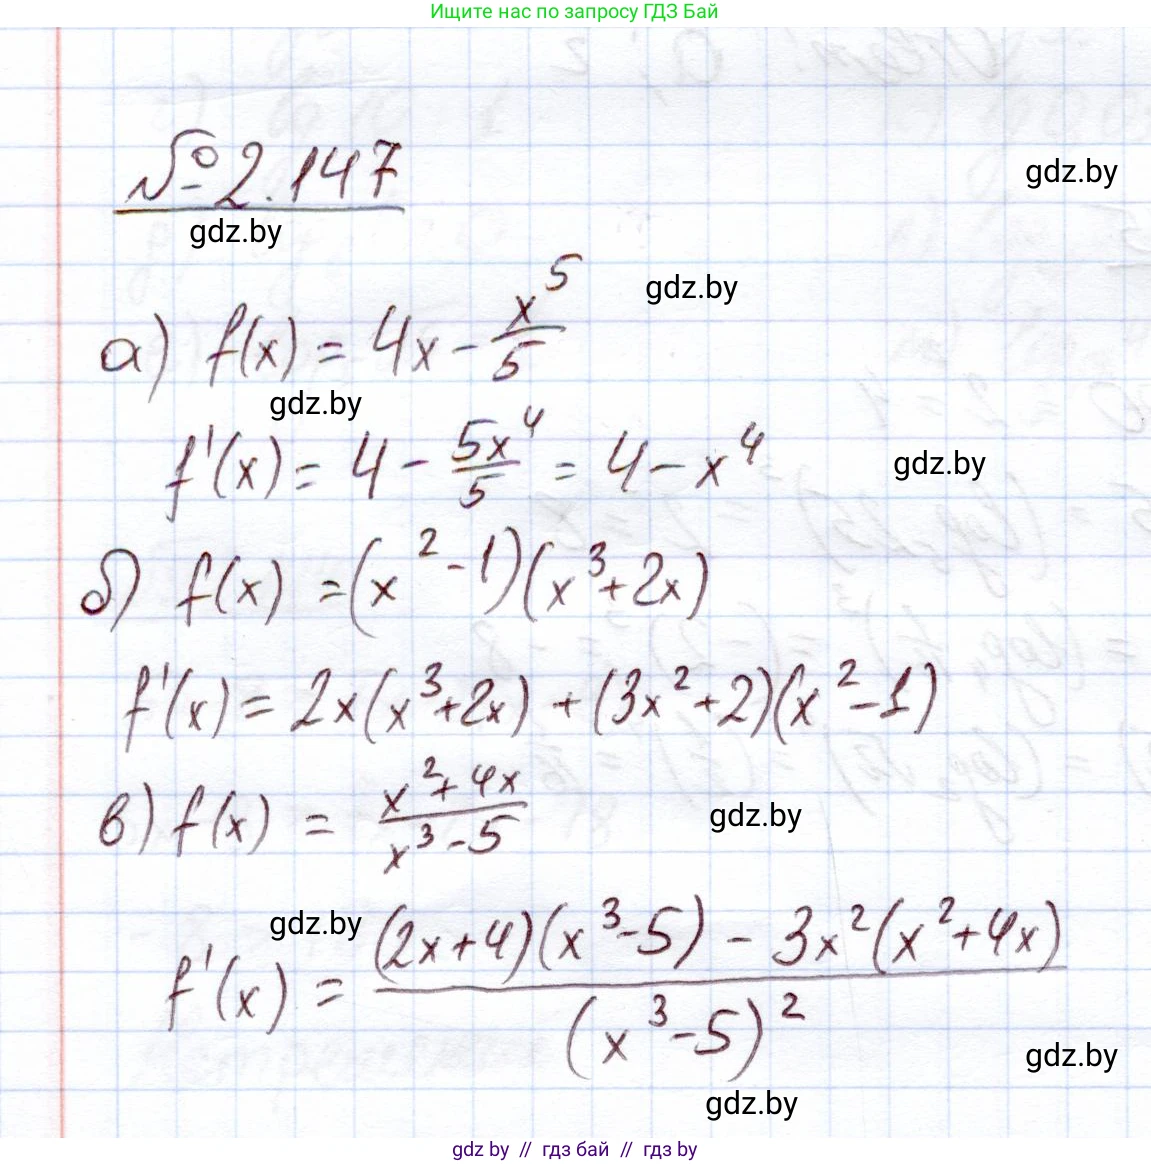 Ищите нас по запросу ГДЗ Бай
№ 2.147
gdz.by
gdz.by
gdz.by
а) f(x) = 4x - x^5/5
gdz.by
f'(x) = 4 - 5x^4/5 = 4 - x^4
gdz.by
б) f(x) = (x^2 - 1)(x^3 + 2x)
f'(x) = 2x(x^3 + 2x) + (3x^2 + 2)(x^2 - 1)
в) f(x) = (x^2 + 4x)/(x^3 - 5)
gdz.by
gdz.by
f'(x) = ((2x + 4)(x^3 - 5) - 3x^2(x^2 + 4x))/(x^3 - 5)^2
gdz.by
gdz.by
gdz by // гдз бай // гдз by